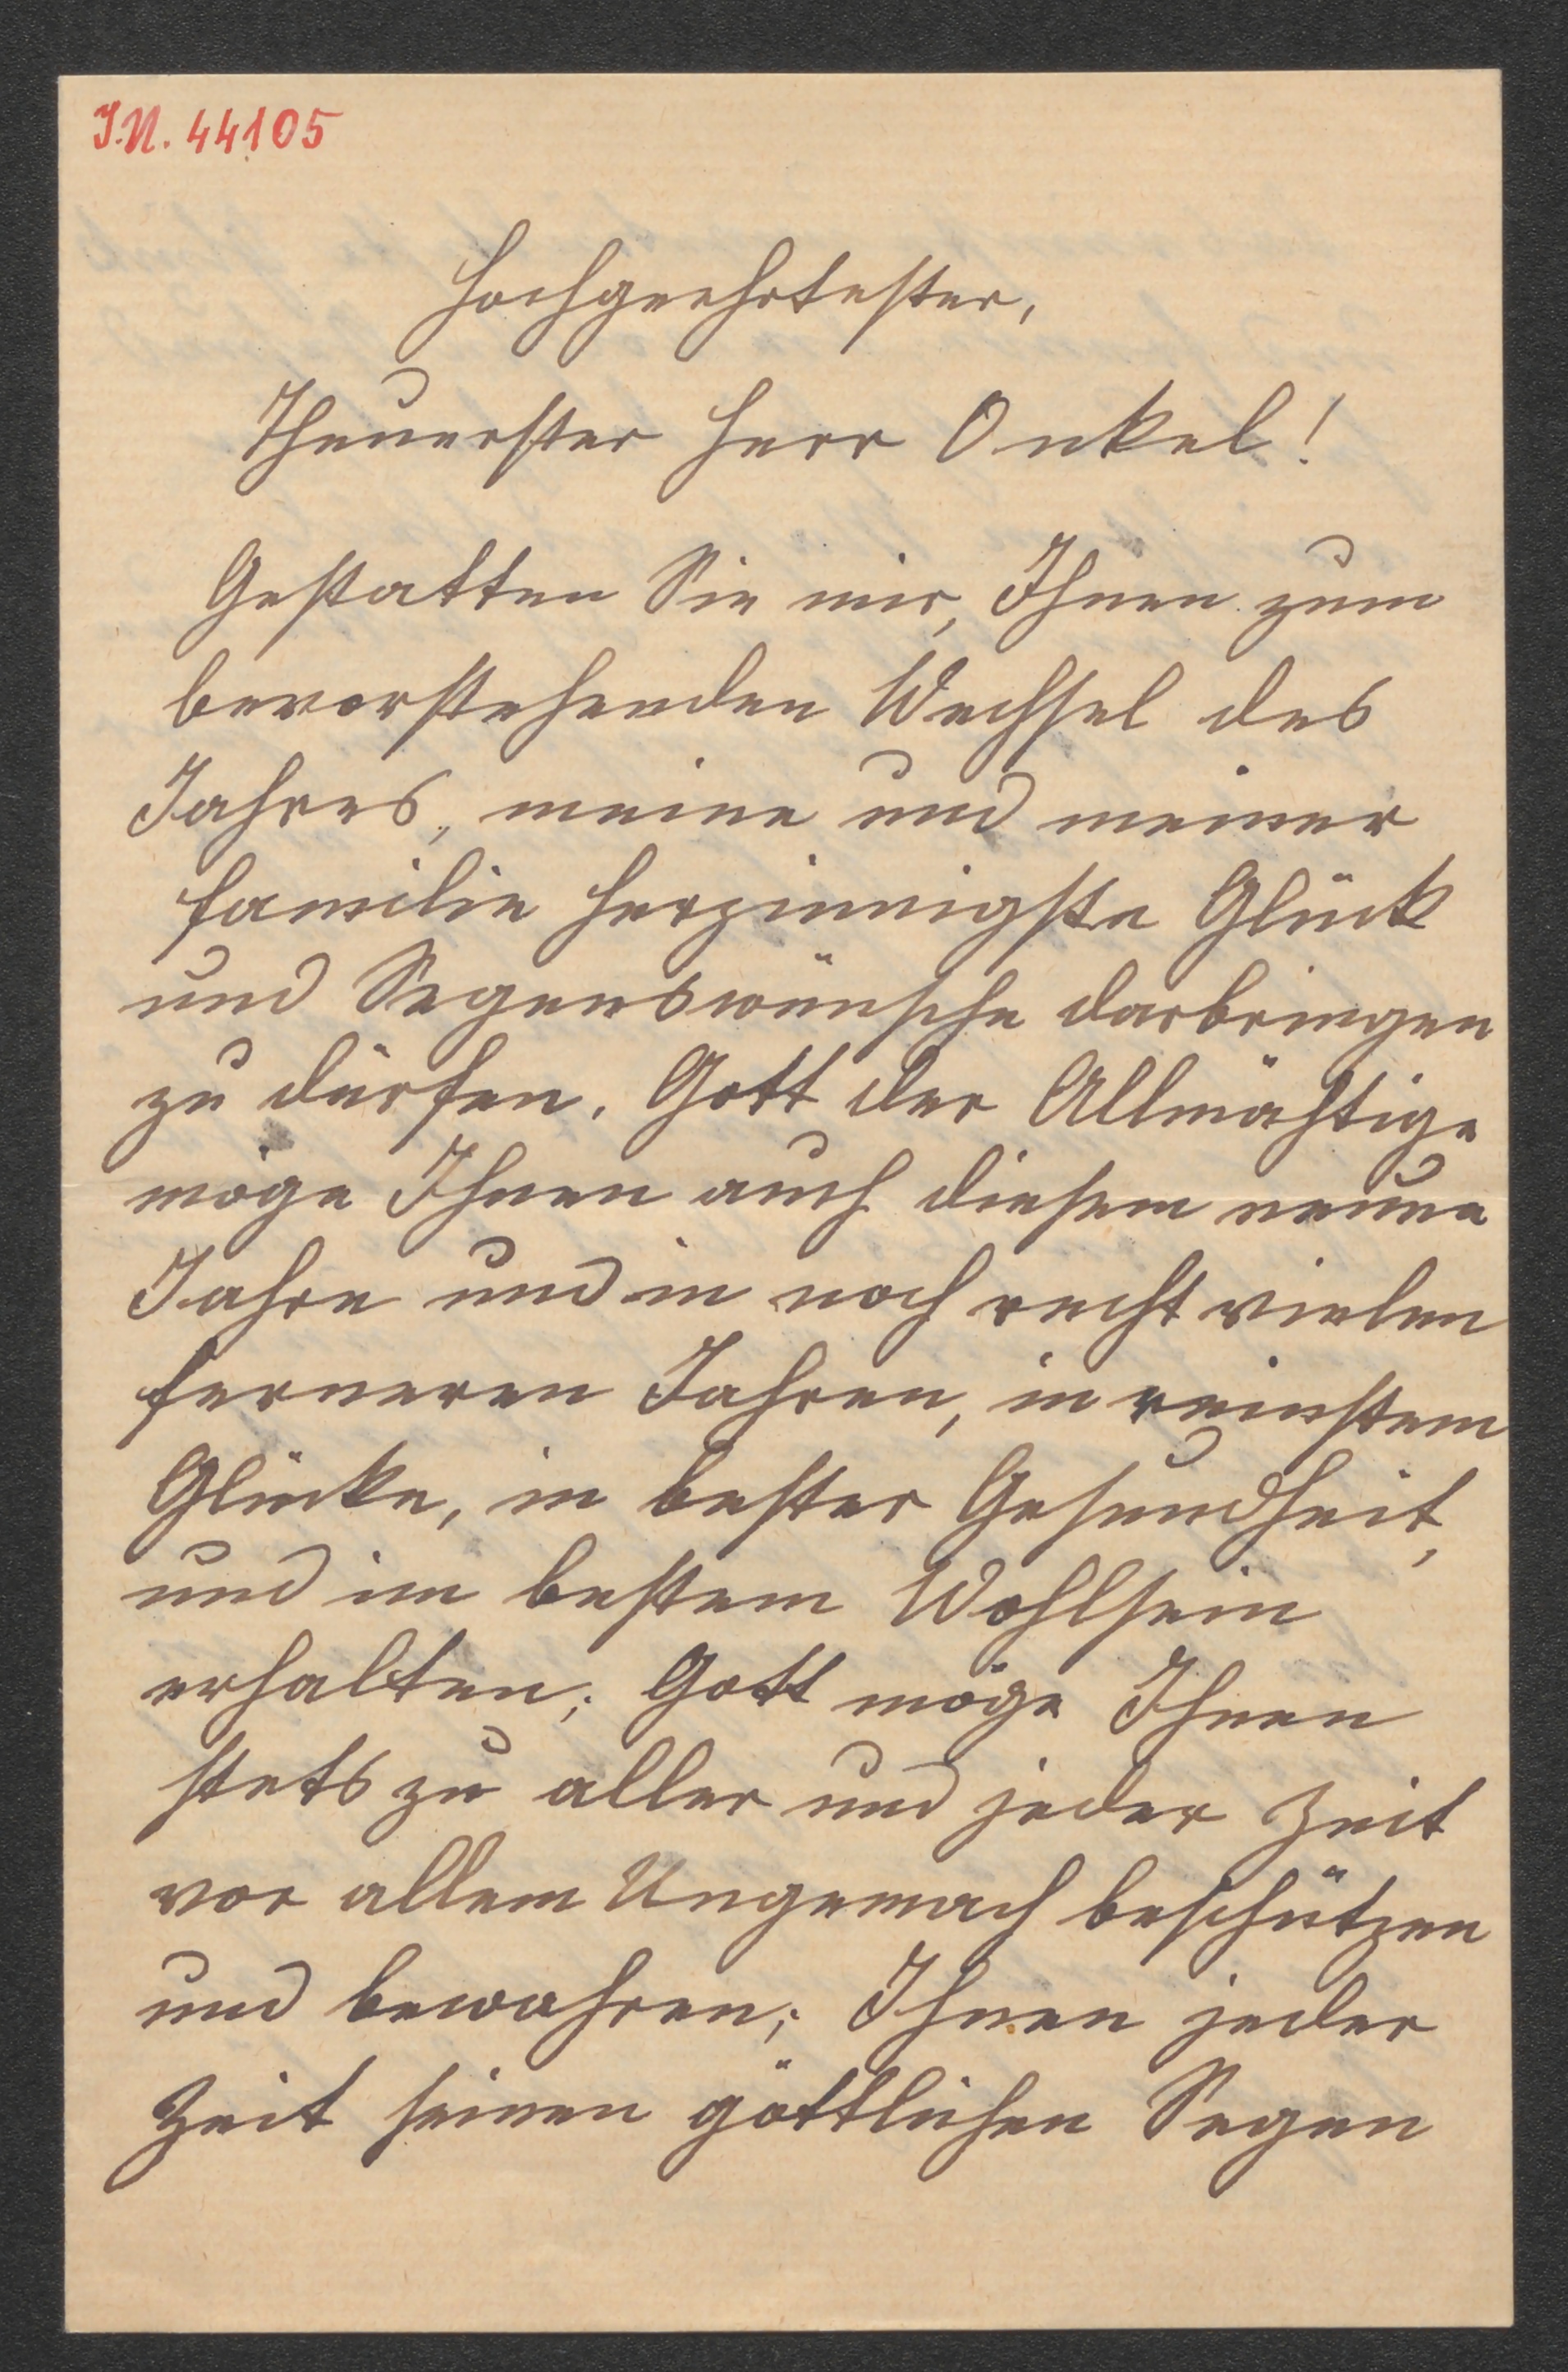 I.N. 44105
Hochgeehrtester,
Theuerster Herr Onkel!
Gestatten Sie mir, Ihnen zum
bevorstehenden Wechsel des
Jahres, meine und meiner
Familie herzinnigste Glück
und Segenswünsche darbringen
zu dürfen. Gott der Allmächtige
möge Ihnen auch diesem neune
Jahre und in noch recht vielen
ferneren Jahren, in reinstem
Glücke, in bester Gesundheit,
und im bestem Wohlsein
erhalten; Gott möge Ihnen
stets zu aller und jeder Zeit
vor allem Ungemach beschützen
und bewahren; Ihnen jeder
Zeit seinen göttlichen Segen